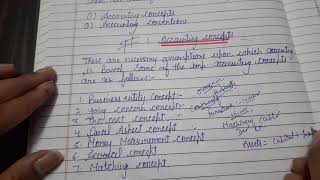 (1) Accounting concepts
(2) Accounting conventions
Accounting concepts
These are necessary assumptions upon which accounting
is based. Some of the imp accounting concepts
are as follows:-
1 Business entity concept
2 Going concern concept
3 The cost concept
4 Dual Aspect concept
5 Money Measurement concept
6 concept
7. Matching concept
Machinery Cost
Assets = Capital +